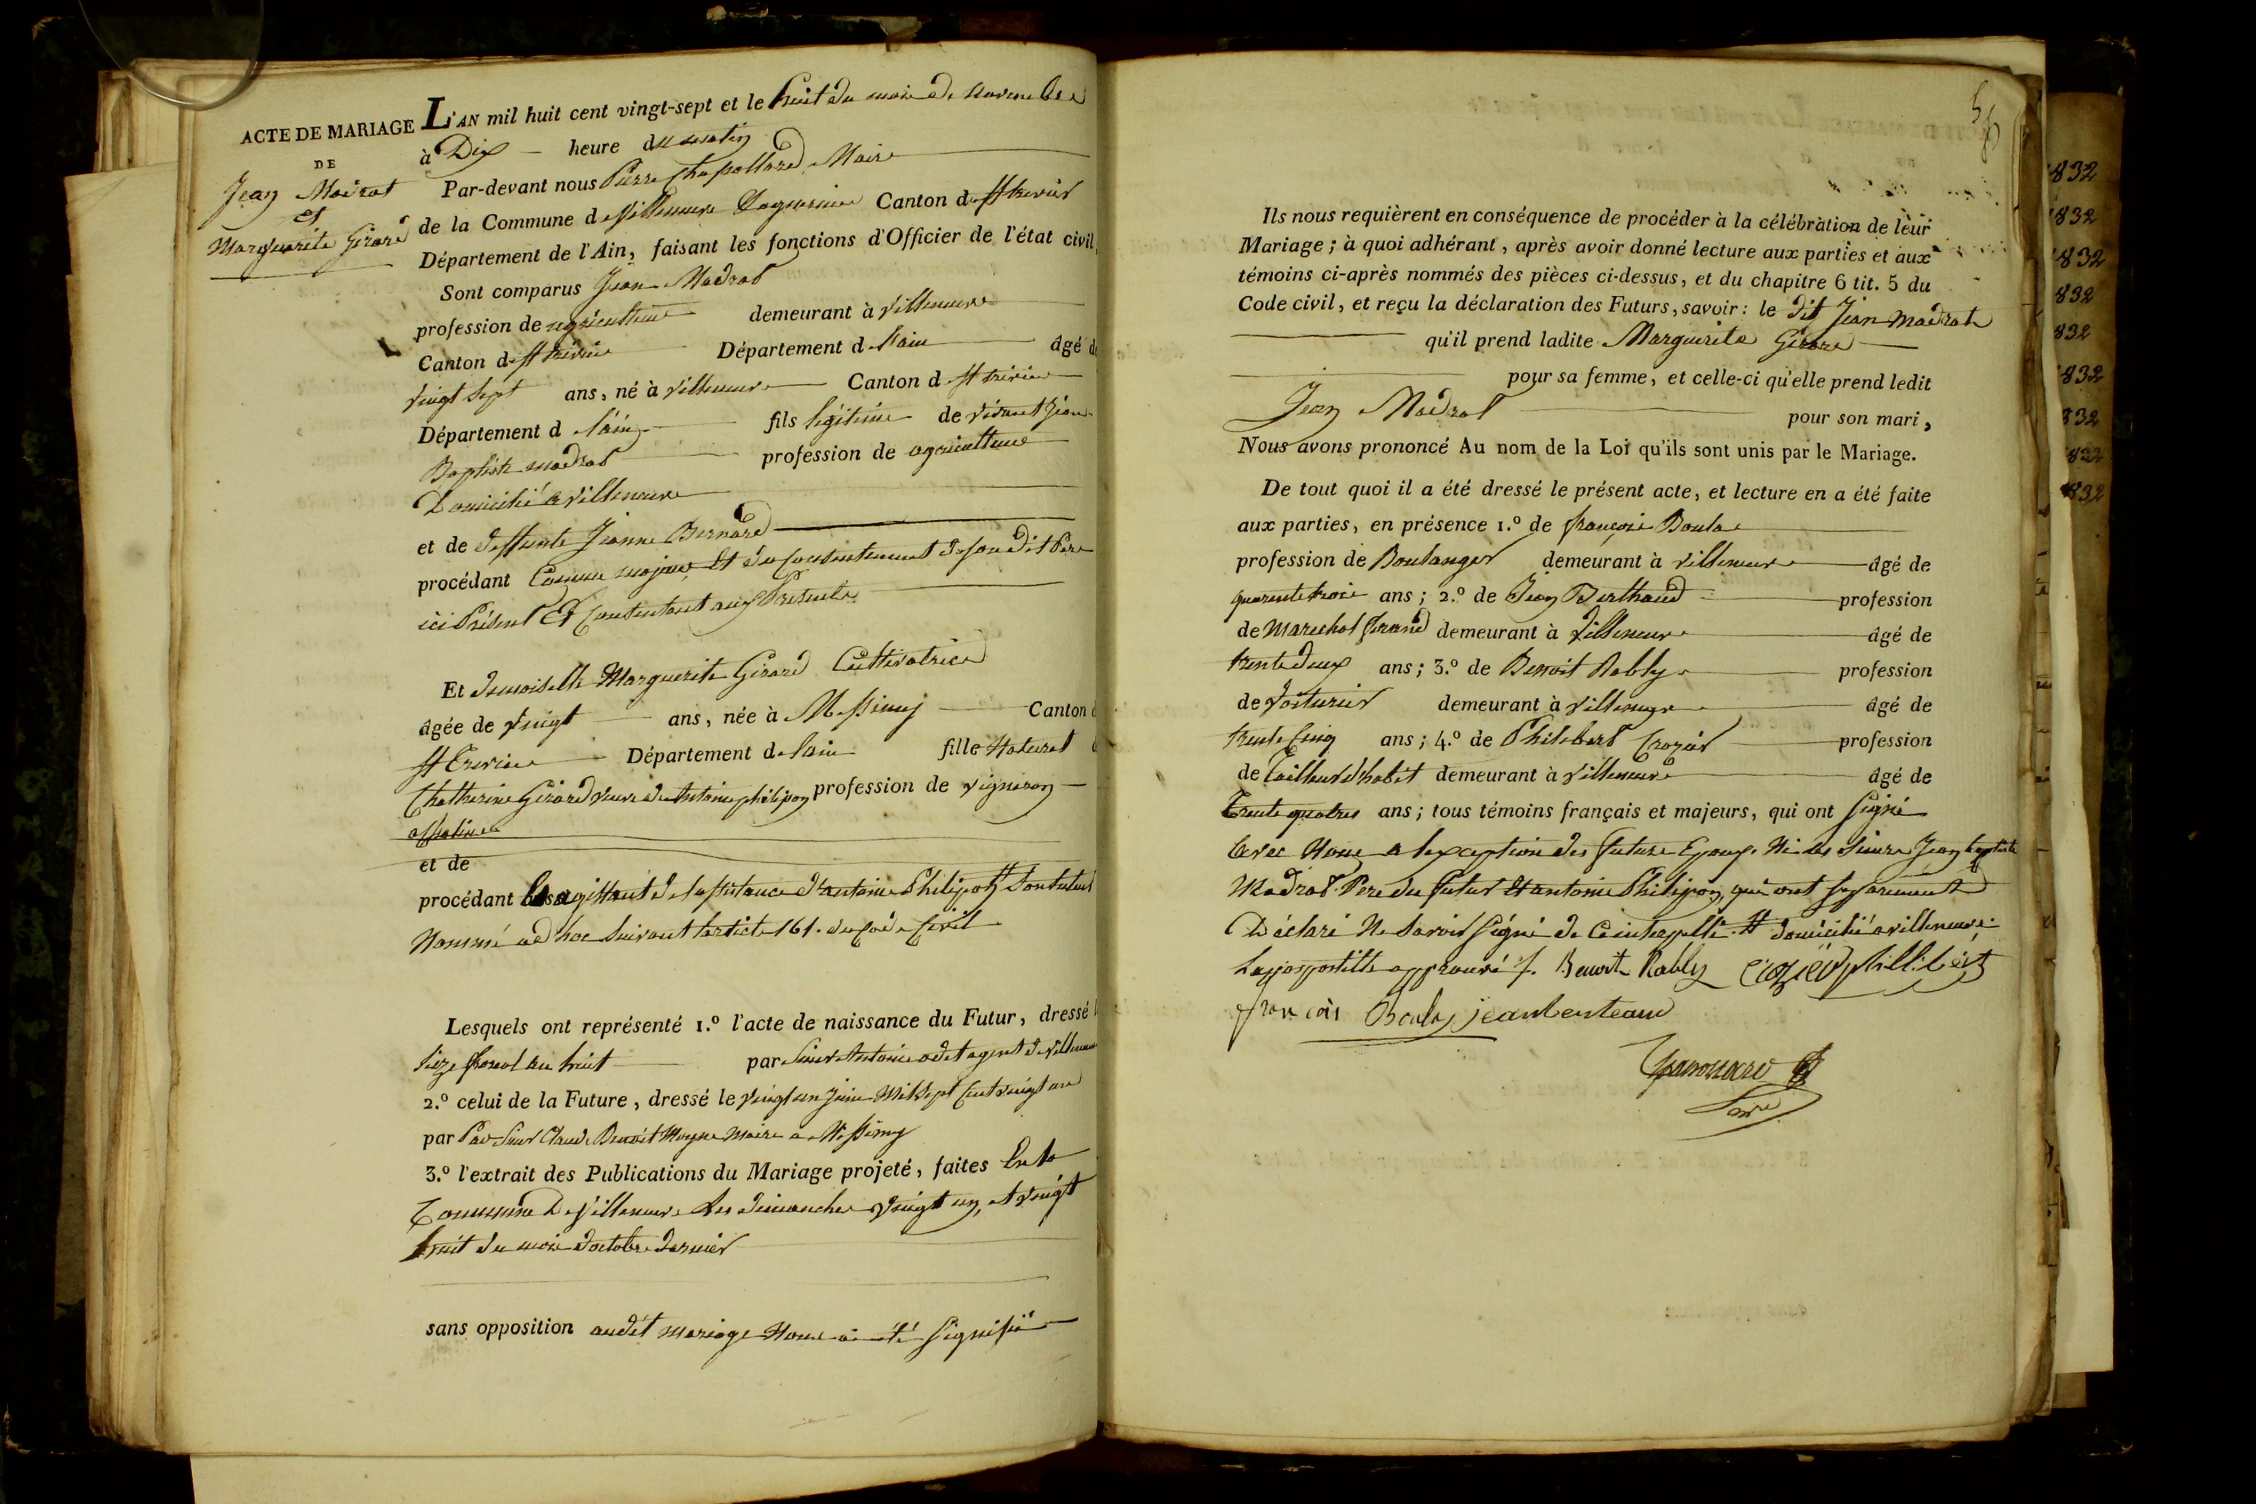 ACTE DE MARIAGE
DE
Jean Madrat
et
Marguerite Girard
L'AN mil huit cent vingt-sept et le huit du mois de novembre
à Dix heure du matin
Par-devant nous Pierre Chapollard Maire
de la Commune de Villeneuve Canton de St trivier
Département de l'Ain, faisant les fonctions d'Officier de l'état civil,
Sont comparus Jean Madrat
profession de agriculteur demeurant à Villeneuve
Canton de St trivier Département de l'ain âgé de
vingt sept ans, né à villeneuve Canton de St trivier
Département de l'ain fils légitime de vivant Jean
Baptiste madrat profession de agriculteur
Domicilié a villeneuve
et de deffunte Jeanne Bernard
procédant comme majeur et du consentement de son dit Père
ici Présent Et Consentant aux Présentes
Et demoiselle Marguerite Girard Cultivatrice
âgée de vingt ans, née à Messimy Canton d
St Trivier Département de l'ain fille Naturel d
Chatherine Girard veuve de Antoine philipon profession de vigneron
et de
procédant de l'assistance d'antoine Philipon Son tuteur
Nommé ad hoc suivant l'article 161. du Code Civil
Lesquels ont représenté 1.º l'acte de naissance du Futur, dressé l
an huit par Sieur Antoine agent de villeneuve
2.º celui de la Future, dressé le vingt un juin
par Sieur Claude Benoit Moyne Maire a Messimy
3.º l'extrait des Publications du Mariage projeté, faites En la
Commune De Villeneuve Les dimanches vingt un, et vingt
huit du mois d'octobre dernier
sans opposition audit mariage Nous ai été signifié
56
Ils nous requièrent en conséquence de procéder à la célébration de leur
Mariage ; à quoi adhérant, après avoir donné lecture aux parties et aux
témoins ci-après nommés des pièces ci-dessus, et du chapitre 6 tit. 5 du
Code civil, et reçu la déclaration des Futurs, savoir : le dit Jean Madrat
qu'il prend ladite Marguerite Girard
pour sa femme, et celle-ci qu'elle prend ledit
Jean Madrat pour son mari,
Nous avons prononcé Au nom de la Loi qu'ils sont unis par le Mariage.
De tout quoi il a été dressé le présent acte, et lecture en a été faite
aux parties, en présence 1.º de françois Boula
profession de Boulanger demeurant à villeneuve âgé de
quarente trois ans ; 2.º de Jean Berthaud profession
de Marechal ferand demeurant à Villeneuve âgé de
trente deux ans ; 3.º de Benoit Rably profession
de Voiturier demeurant à villeneuve âgé de
trente Cinq ans ; 4.º de Philibert Crozier profession
de Tailleur d'habit demeurant à villeneuve âgé de
Trente quatres ans ; tous témoins français et majeurs, qui ont signé
avec Nous a l'exception des future Epoux Ni les Sieurs Jean baptiste
Madrat Père du futur Et antoine Philipon, qui ont separement
Déclaré Ne Savoir Signé de Ce interpellé. # domicilié a villeneuve.
approuvé ./. Benoit Rably crozier phillibert
francois Boula
Maire
832
832
832
832
832
832
832
832
832